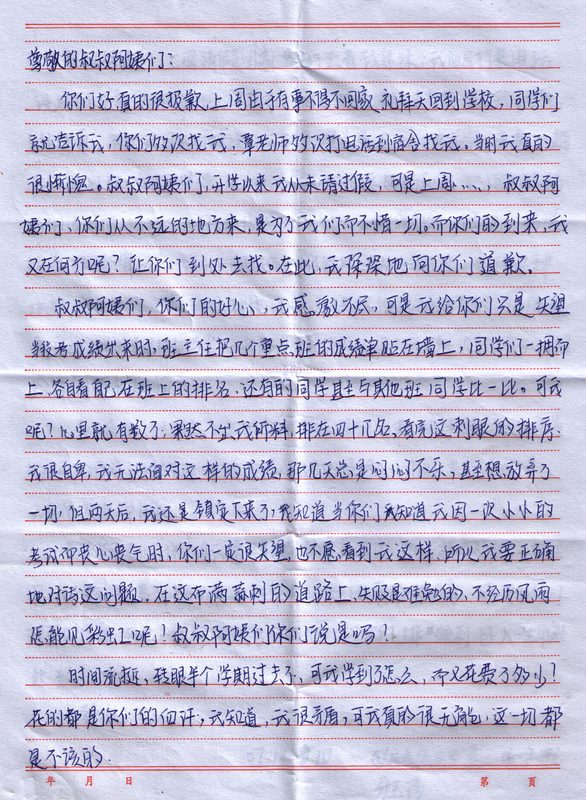 尊敬的叔叔阿姨们：
你们好真的很报歉，上周由于有事不得不回家，礼拜天回到学校，同学们
就告诉我，你们多次找我，覃老师多次打电话到宿舍找我，当时我真的
很惭愧。叔叔阿姨们，开学以来我从未请过假，可是上周、、、、叔叔阿
姨们，你们从不远的地方来，是为了我们而不惜一切。而你们的到来，我
又在何方呢？让你们到处去找。在此，我深深地向你们道歉。
叔叔阿姨们，你们的好心，我感激不尽，可是我给你们只是失望
当段考成绩出来时，班主任把几个重点班的成绩单贴在墙上，同学们一拥而
上，各自看自己在班上的排名，还有的同学甚至与其他班同学比一比。可我
呢？心里就有数了，果然不出我所料，排在四十几名，看完这刺眼的排序，
我很自卑，我无法面对这样的成绩，那几天总是闷闷不乐，甚至想放弃了
一切，但两天后，我还是镇定下来了，我知道当你们知道我因一次小小的
考试而丧儿丧气时，你们一定很失望，也不愿看到我这样，所以我要正确
地对待这问题。在这布满荆刺的道路上，失败是难免的，不经历风雨
怎能见彩虹呢！叔叔阿姨们你们说是吗？
时间流逝，转眼半个学期过去了，可我学到了怎么，而又花费了多少？
花的都是你们的血汗，我知道，我很矛盾，可我真的很无能，这一切都
是不该的。
年 月 日 第 頁